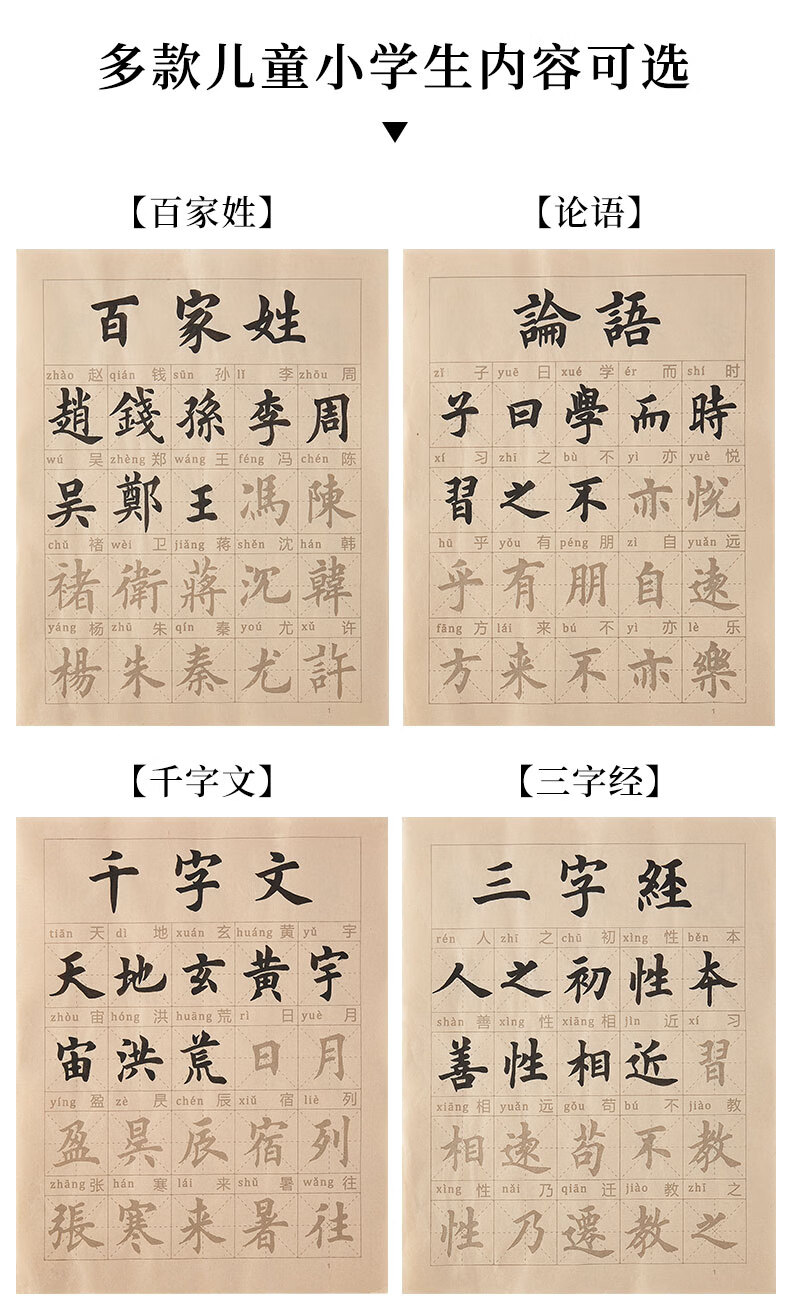 多款儿童小学生内容可选
【百家姓】
百家姓
zhào 赵 qián 钱 sūn 孙 lǐ 李 zhōu 周
趙錢孫李周
wú 吴 zhèng 郑 wáng 王 féng 冯 chén 陈
吴鄭王馮陳
chǔ 褚 wèi 卫 jiǎng 蒋 shěn 沈 hán 韩
褚衛蔣沉韓
yáng 杨 zhū 朱 qín 秦 yoú 尤 xǔ 许
楊朱秦尤許
1
【论语】
論語
zǐ 子 yuē 曰 xué 学 ér 而 shí 时
子曰學而時
xí 习 zhī 之 bù 不 yì 亦 yuè 悦
習之不亦悅
hū 乎 yǒu 有 péng 朋 zì 自 yuǎn 远
乎有朋自遠
fāng 方 lái 来 bú 不 yì 亦 lè 乐
方来不亦樂
1
【千字文】
千字文
tiān 天 dì 地 xuán 玄 huáng 黄 yǔ 宇
天地玄黄宇
zhòu 宙 hóng 洪 huāng 荒 rì 日 yuè 月
宙洪荒日月
yíng 盈 zè 昃 chén 辰 xiǔ 宿 liè 列
盈昃辰宿列
zhāng 张 hán 寒 lái 来 shǔ 暑 wǎng 往
張寒来暑往
1
【三字经】
三字經
rén 人 zhī 之 chū 初 xìng 性 běn 本
人之初性本
shàn 善 xìng 性 xiāng 相 jìn 近 xí 习
善性相近習
xiāng 相 yuǎn 远 gǒu 苟 bú 不 jiào 教
相遠苟不教
xìng 性 nǎi 乃 qiān 迁 jiào 教 zhī 之
性乃遷教之
1